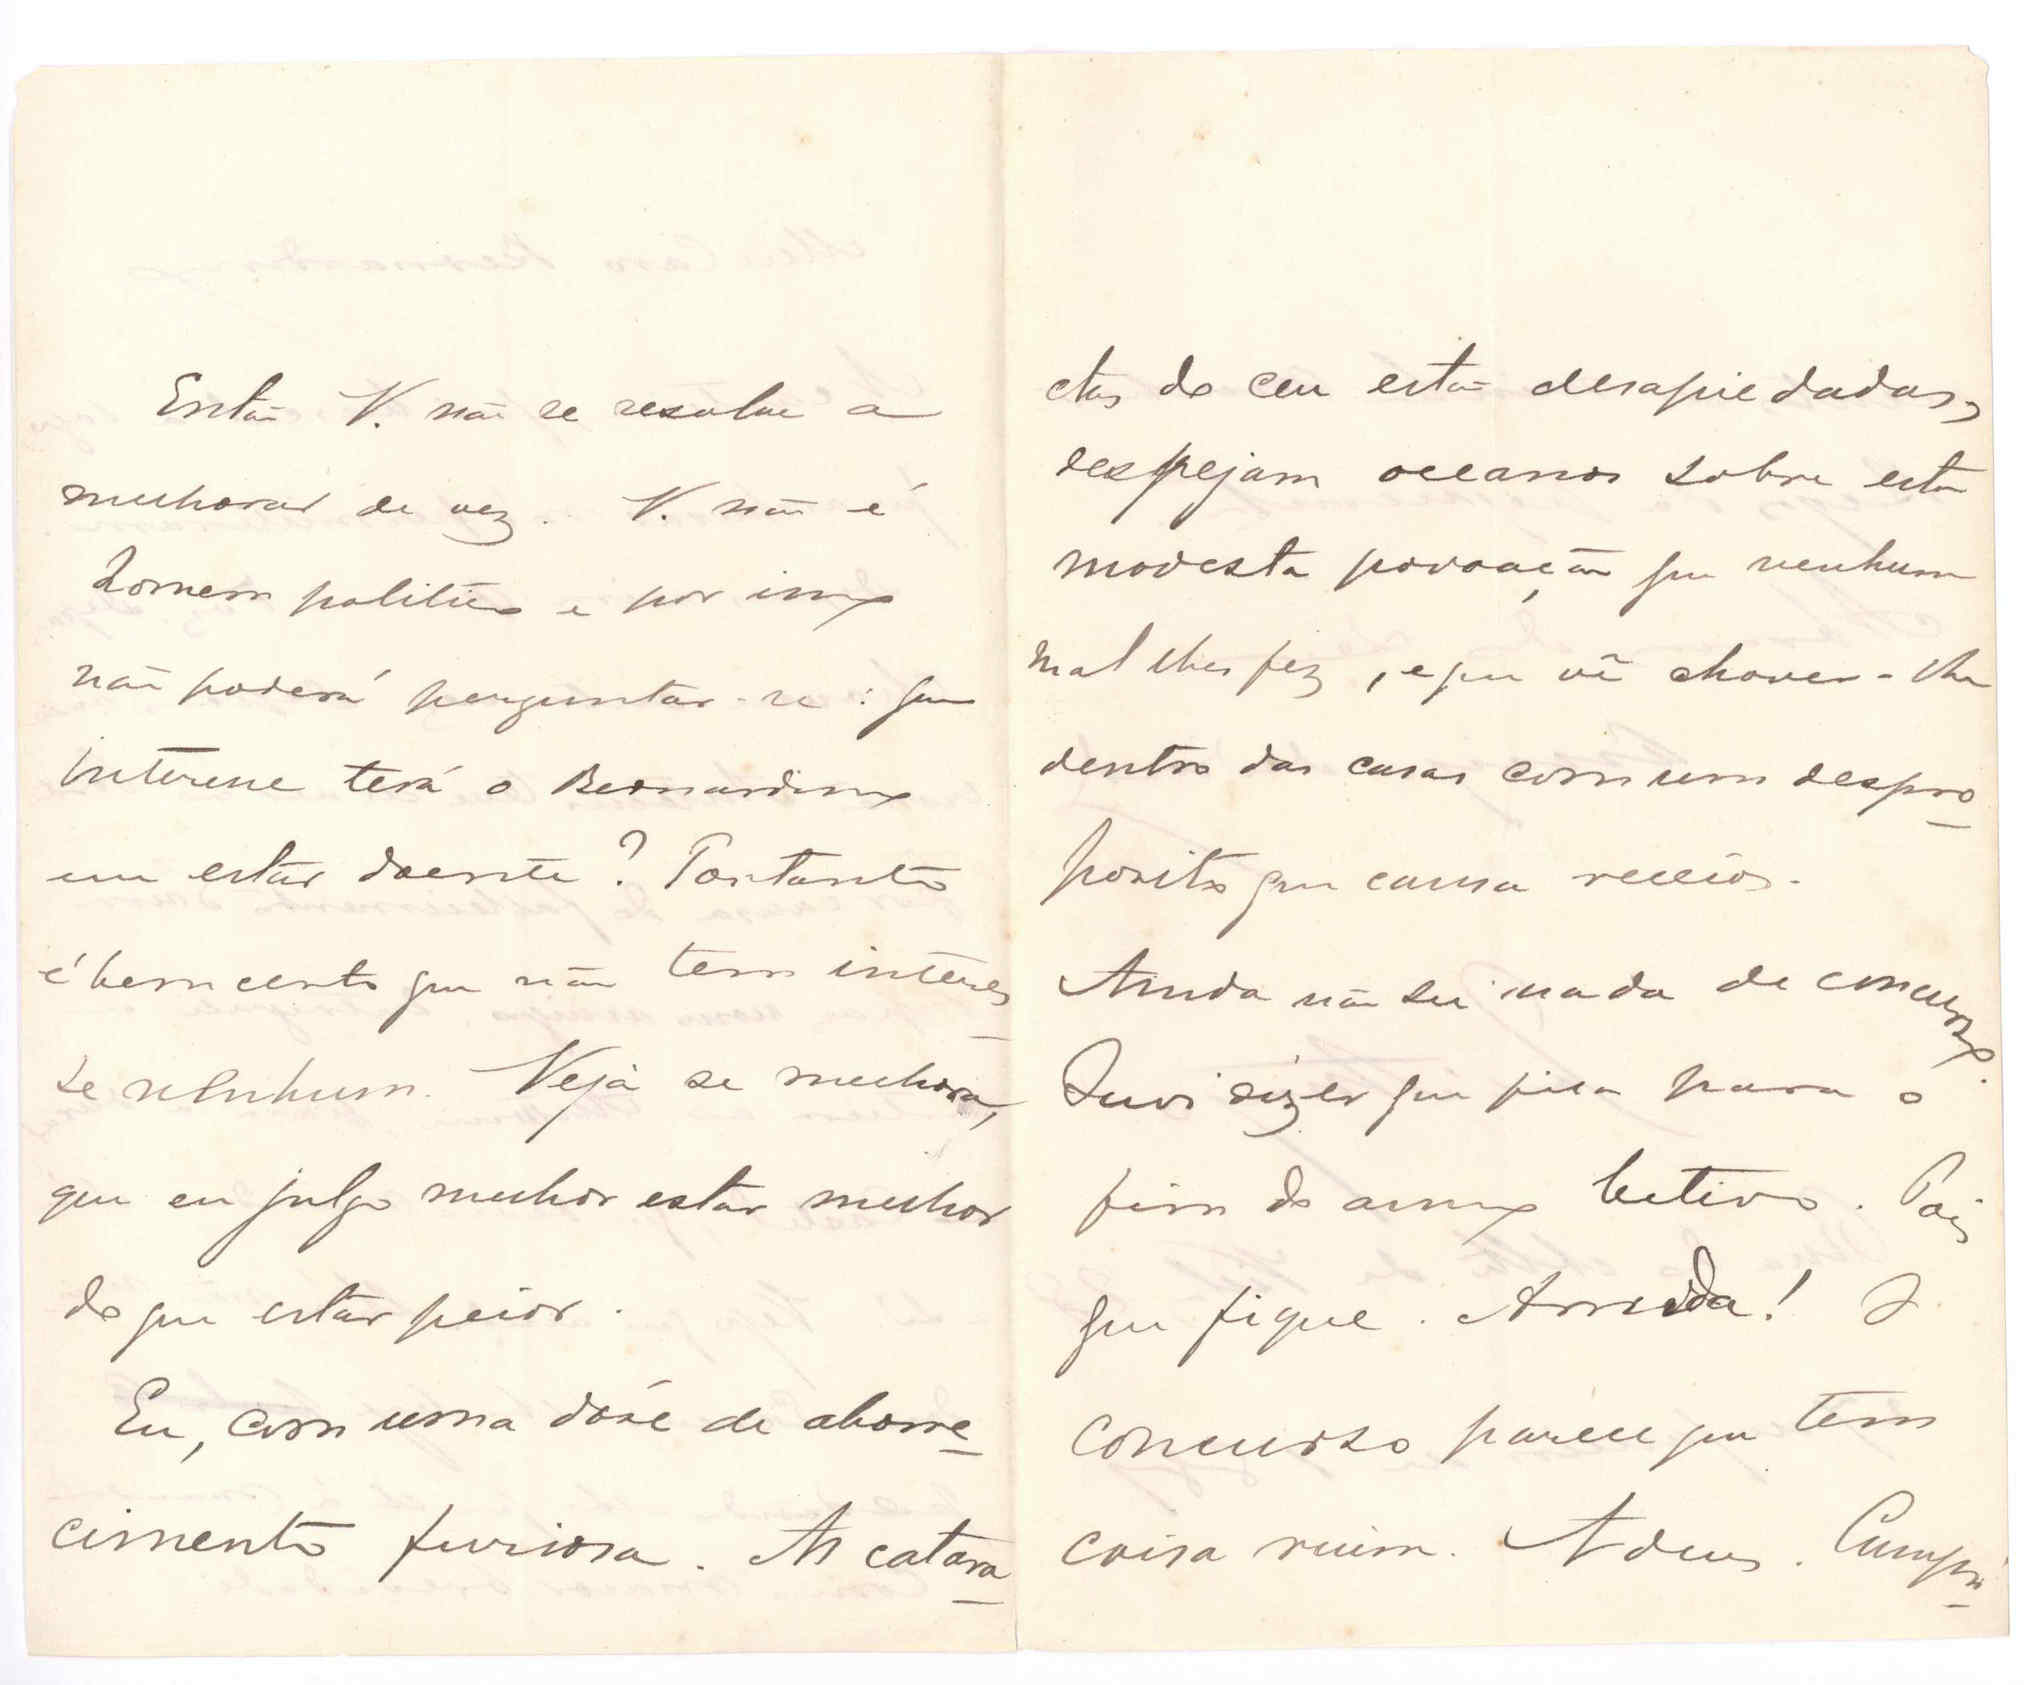 Então V. não se resolve a
melhorar de vez. V. não é
homem politico e por isso
não poderá perguntar-se: que
interesse terá o Bernardino
em estar doente? Portanto
é bem certo que não tem interes
se nenhum. Veja se melhora,
que eu julgo melhor estar melhor
do que estar peior.
Eu, com uma dóse de aborre
cimento furiosa. As catara
ctas do ceu estão desapiedadas,
despejam oceanos sobre esta
modesta povoação que nenhum
mal lhes fez, e que vê chover-lhe
dentro das casas com um despro
posito que causa receios.
Ainda não sei nada de concurso.
Ouvi dizer que fica para o
fim do anno lectivo. Pois
que fique. Arreda! O
concurso parece que tem
coisa ruim. Adeus. Cumpri